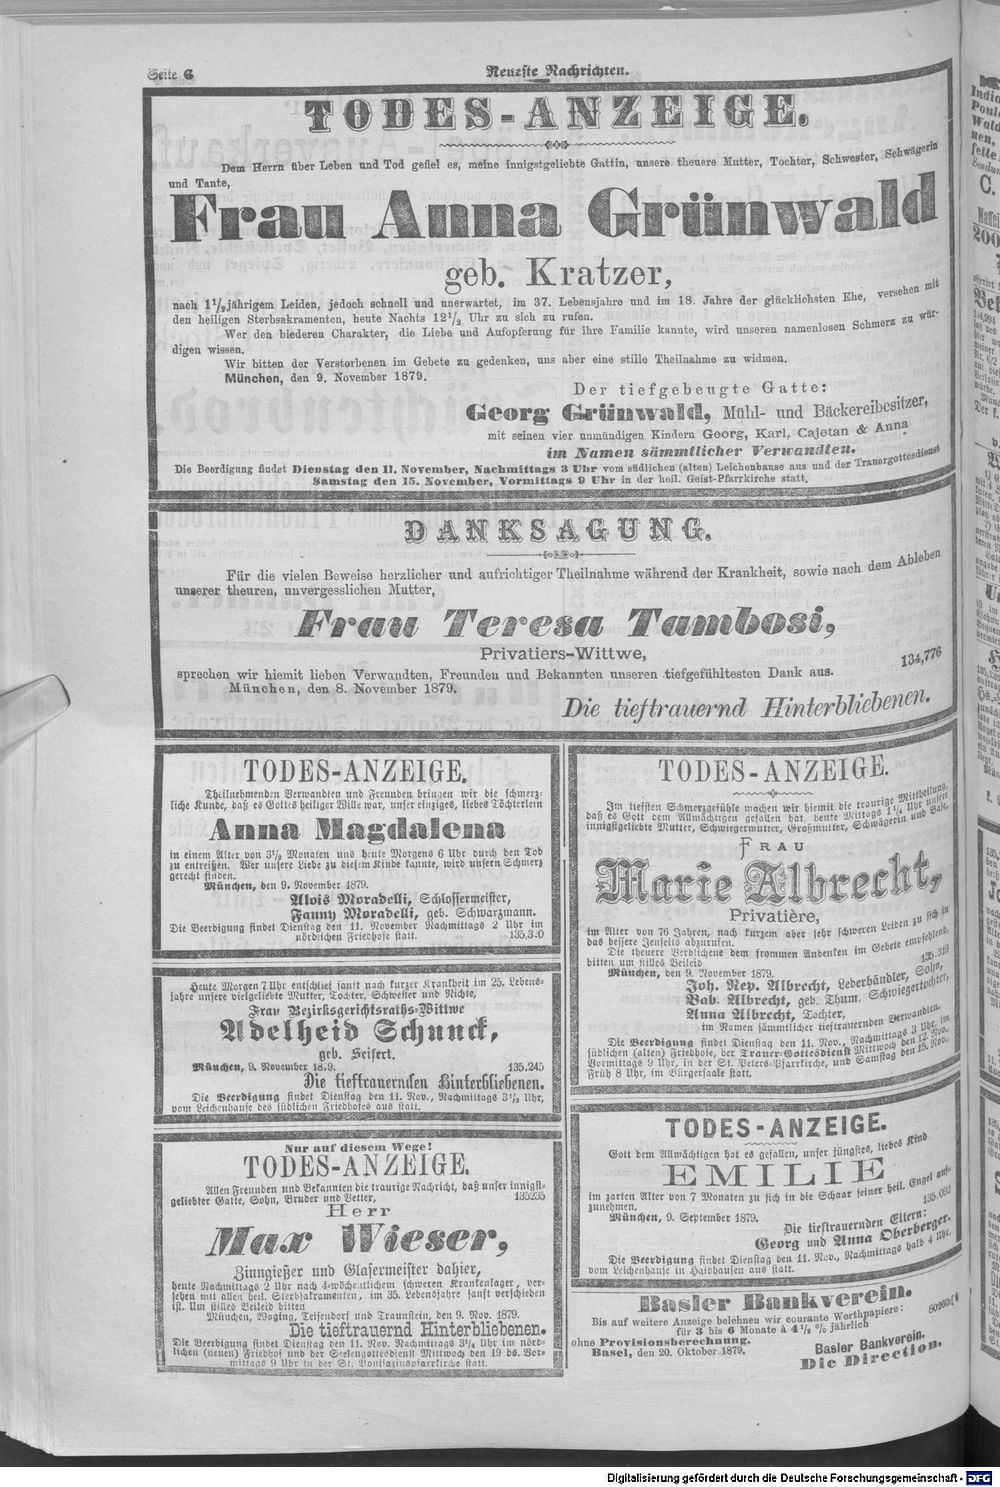 Seite 6
Neueste Nachrichten.
TODES-ANZEIGE.
Dem Herrn über Leben und Tod gefiel es, meine innigstgeliebte Gattin, unsere theuere Mutter, Tochter, Schwester, Schwägerin
und Tante,
Frau Anna Grünwald
geb. Kratzer,
nach 1½jährigem Leiden, jedoch schnell und unerwartet, im 37. Lebensjahre und im 18. Jahre der glücklichsten Ehe, versehen mit
den heiligen Sterbsakramenten, heute Nachts 12½ Uhr zu sich zu rufen.
Wer den biederen Charakter, die Liebe und Aufopferung für ihre Familie kannte, wird unseren namenlosen Schmerz zu wür-
digen wissen.
Wir bitten der Verstorbenen im Gebete zu gedenken, uns aber eine stille Theilnahme zu widmen.
München, den 9. November 1879.
Der tiefgebeugte Gatte:
Georg Grünwald, Mühl- und Bäckereibesitzer,
mit seinen vier unmündigen Kindern Georg, Karl, Cajetan & Anna
im Namen sämmtlicher Verwandten.
Die Beerdigung findet Dienstag den 11. November, Nachmittags 3 Uhr vom südlichen (alten) Leichenhause aus und der Trauergottesdienst
Samstag den 15. November, Vormittags 9 Uhr in der heil. Geist-Pfarrkirche statt.
DANKSAGUNG.
Für die vielen Beweise herzlicher und aufrichtiger Theilnahme während der Krankheit, sowie nach dem Ableben
unserer theuren, unvergesslichen Mutter,
Frau Teresa Tambosi,
Privatiers-Wittwe,
134,776
sprechen wir hiemit lieben Verwandten, Freunden und Bekannten unseren tiefgefühltesten Dank aus.
München, den 8. November 1879.
Die tieftrauernd Hinterbliebenen.
TODES-ANZEIGE.
Theilnehmenden Verwandten und Freunden bringen wir die schmerz-
liche Kunde, daß es Gottes heiliger Wille war, unser einziges, liebes Töchterlein
Anna Magdalena
in einem Alter von 3½ Monaten uns heute Morgens 6 Uhr durch den Tod
zu entreißen. Wer unsere Liebe zu diesem Kinde kannte, wird unsern Schmerz
gerecht finden.
München, den 9. November 1879.
Alois Moradelli, Schlossermeister,
Fanny Moradelli, geb. Schwarzmann.
Die Beerdigung findet Dienstag den 11. November Nachmittags 2 Uhr im
nördlichen Friedhofe statt.
Heute Morgen 7 Uhr entschlief sanft nach kurzer Krankheit im 25. Lebens-
jahre unsere vielgeliebte Mutter, Tochter, Schwester und Nichte,
Frau Bezirksgerichtsraths-Wittwe
Adelheid Schunck,
geb. Seifert.
München, 9. November 18.9. 135.245
Die tieftrauernden Hinterbliebenen.
Die Beerdigung findet Dienstag den 11. Nov., Nachmittags 3½ Uhr,
vom Leichenhause des südlichen Friedhofes aus statt.
Nur auf diesem Wege!
TODES-ANZEIGE.
Allen Freunden und Bekannten die traurige Nachricht, daß unser innigst-
geliebter Gatte, Sohn, Bruder und Vetter, 135235
Herr
Max Wieser,
Zinngießer und Glasermeister dahier,
heute Nachmittags 2 Uhr nach 4-wöchentlichem schweren Krankenlager, ver-
sehen mit allen heil. Sterbsakramenten, im 35. Lebensjahre sanft verschieden
ist. Um stilles Beileid bitten
München, Waging, Teisendorf und Traunstein, den 9. Nov. 1879.
Die tieftrauernd Hinterbliebenen.
Die Beerdigung findet Dienstag den 11. Nov. Nachmittags 3¼ Uhr im nörd-
lichen (neuen) Friedhof und der Seelengottesdienst Mittwoch den 19 ds. Vor-
mittags 9 Uhr in der St. Bonifaziuspfarrkirche statt.
TODES-ANZEIGE.
Im tiefsten Schmerzgefühle machen wir hiemit die traurige Mittheilung,
daß es Gott dem Allmächtigen gefallen hat, heute Mittags 1¼ Uhr unsere
innigstgeliebte Mutter, Schwiegermutter, Großmutter, Schwägerin und Base,
FRAU
Marie Albrecht,
Privatière,
im Alter von 76 Jahren, nach kurzem aber sehr schweren Leiden zu sich in
das bessere Jenseits abzurufen.
Die theuere Verblichene dem frommen Andenken im Gebete empfehlend,
bitten um stilles Beileid 135.319
München, den 9. November 1879.
Joh. Nep. Albrecht, Lederhändler, Sohn,
Bab. Albrecht, geb. Thum, Schwiegertochter,
Anna Albrecht, Tochter,
im Namen sämmtlicher tieftrauernden Verwandten.
Die Beerdigung findet Dienstag den 11. Nov., Nachmittags 3 Uhr, im
südlichen (alten) Friedhofe, der Trauer-Gottesdienst Mittwoch den 12. Nov.,
Vormittags 9 Uhr, in der St. Peters-Pfarrkirche, und Samstag den 15. Nov.,
Früh 8 Uhr, im Bürgersaale statt.
TODES-ANZEIGE.
Gott dem Allmächtigen hat es gefallen, unser jüngstes, liebes Kind
EMILIE
im zarten Alter von 7 Monaten zu sich in die Schaar seiner heil. Engel auf-
zunehmen. 135.092
München, 9. September 1879.
Die tieftrauernden Eltern:
Georg und Anna Oberberger.
Die Beerdigung findet Dienstag den 11. Nov., Nachmittags halb 4 Uhr,
vom Leichenhause in Haidhausen aus statt.
Basler Bankverein.
Bis auf weitere Anzeige belehnen wir courante Werthpapiere:
für 3 bis 6 Monate à 4½ % jährlich
ohne Provisionsberechnung.
Basel, den 20. Oktober 1879.
Basler Bankverein.
Die Direction.
Digitalisierung gefördert durch die Deutsche Forschungsgemeinschaft - DFG